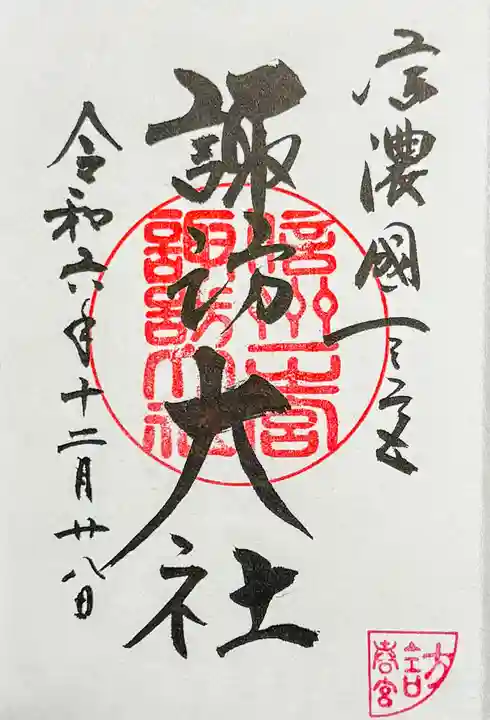 信濃國一之宮
諏訪大社
令和六年十二月廿八日
信州一之宮
諏訪大社
諏訪
春宮